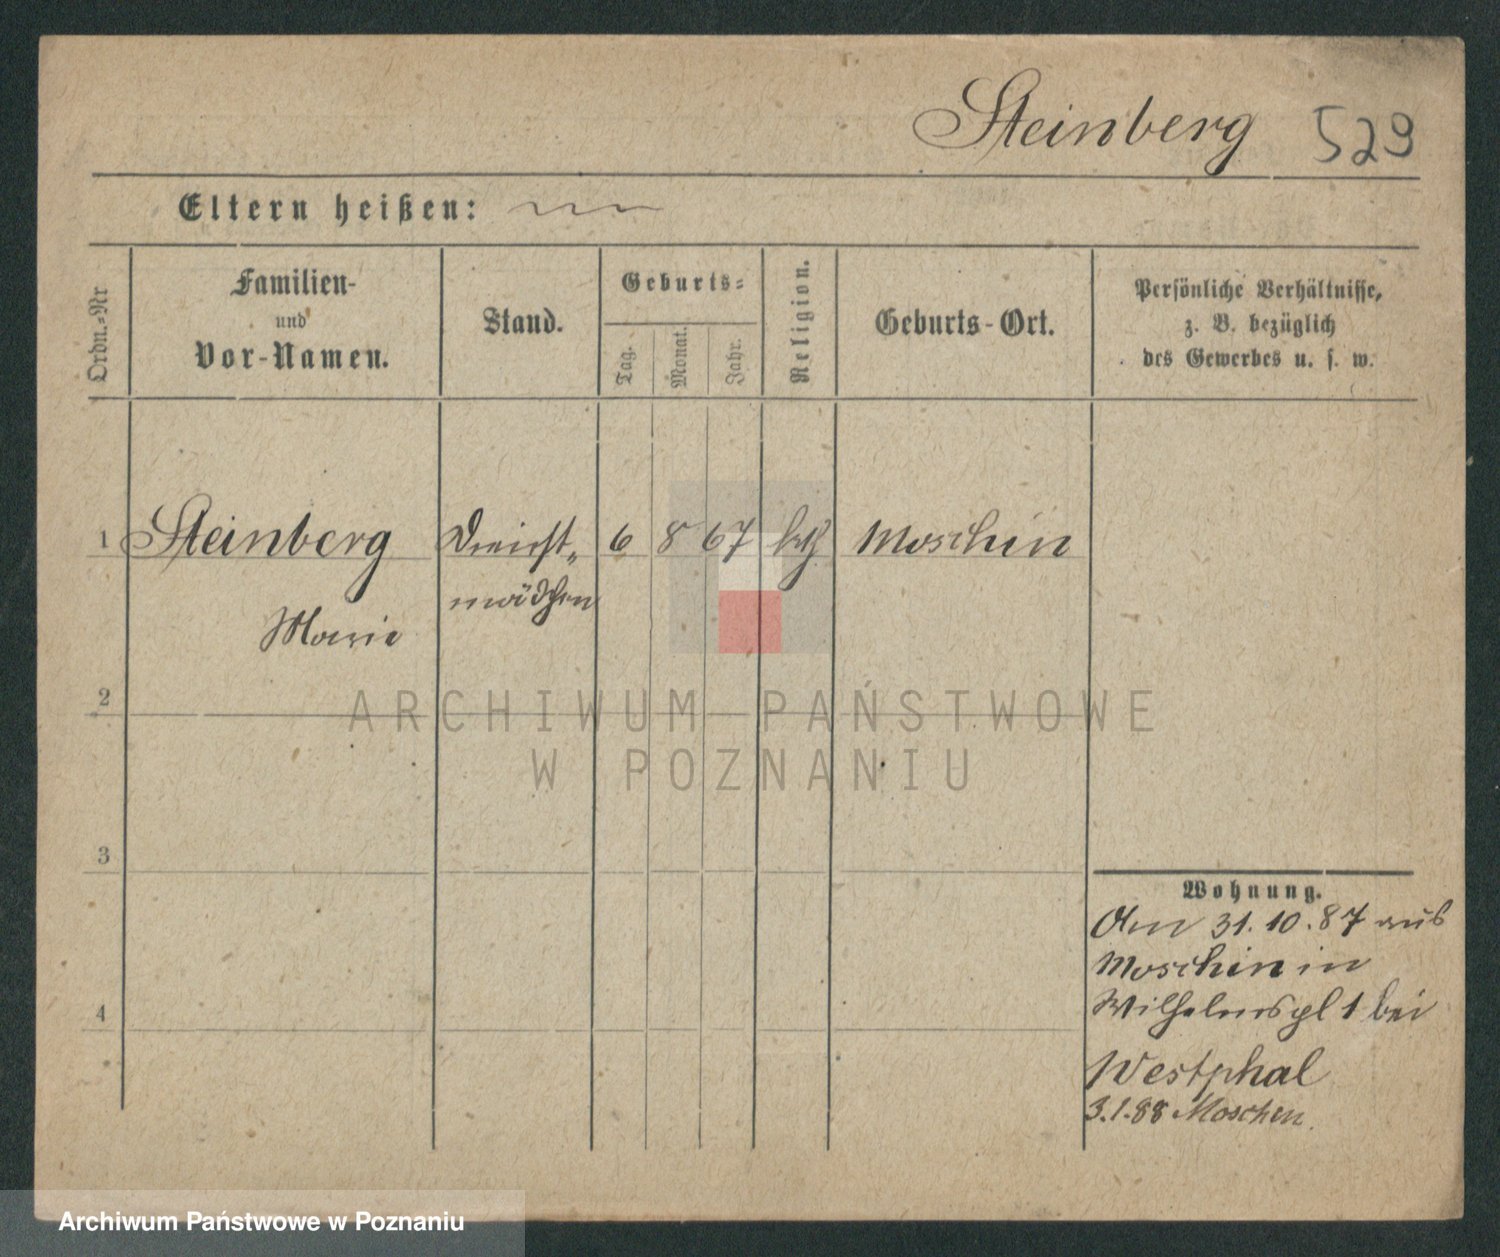 Steinberg 529
Eltern heißen:
Ordn.=Nr
Familien-
und
Vor-Namen.
Stand.
Geburts=
Tag.
Monat.
Jahr.
Religion.
Geburts-Ort.
Persönliche Verhältnisse,
z. B. bezüglich
des Gewerbes u. s. w.
1 Steinberg Dienst„ 6 8 67 kth Moschin
mädchen
Marie
2
ARCHIWUM PAŃSTWOWE
W POZNANIU
3
Wohnung.
Am 31.10.87 aus
Moschin in
4
Wilhelmspl 1 bei
Westphal
3.1.88 Moschen.
Archiwum Państwowe w Poznaniu